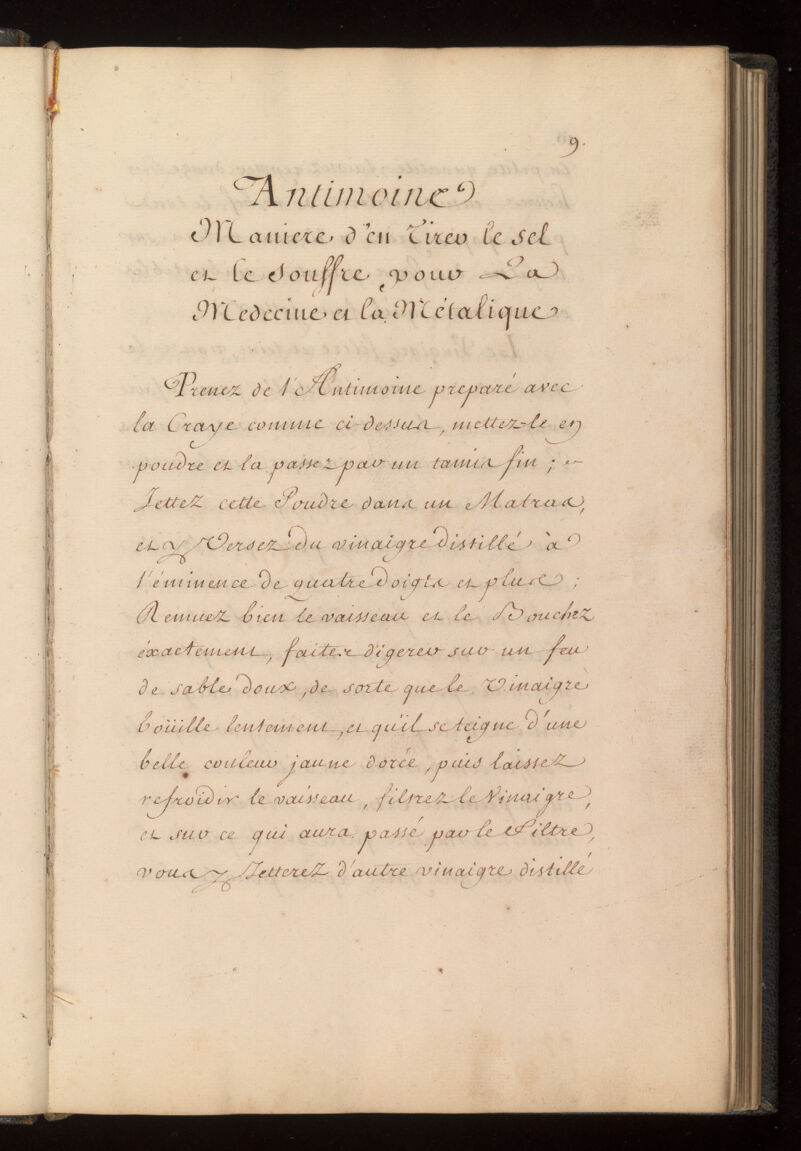 9.
Antimoine
Maniere d'en Tirer le sel
et le Souffre pour La
Medecine et la Métalique
Prenez de l'Antimoine preparé avec
la Craye comme ci-dessus, mettez-le en
poudre et la passez par un tamis fin ;
Jettez cette Poudre dans un Matras,
et y Versez du vinaigre distillé à
l'éminence de quatre doigts et plus ;
Remuez bien le vaisseau et le Bouchez
éxactement, faites digerer sur un feu
de sable doux, de sorte que le Vinaigre
boüille lentement, et qu'il se teigne d'une
belle couleur jaune dorée, puis laissez
refroidir le vaisseau, filtrez le Vinaigre,
et sur ce qui aura passé par le Filtre,
vous y Jetterez d'autre vinaigre distillé